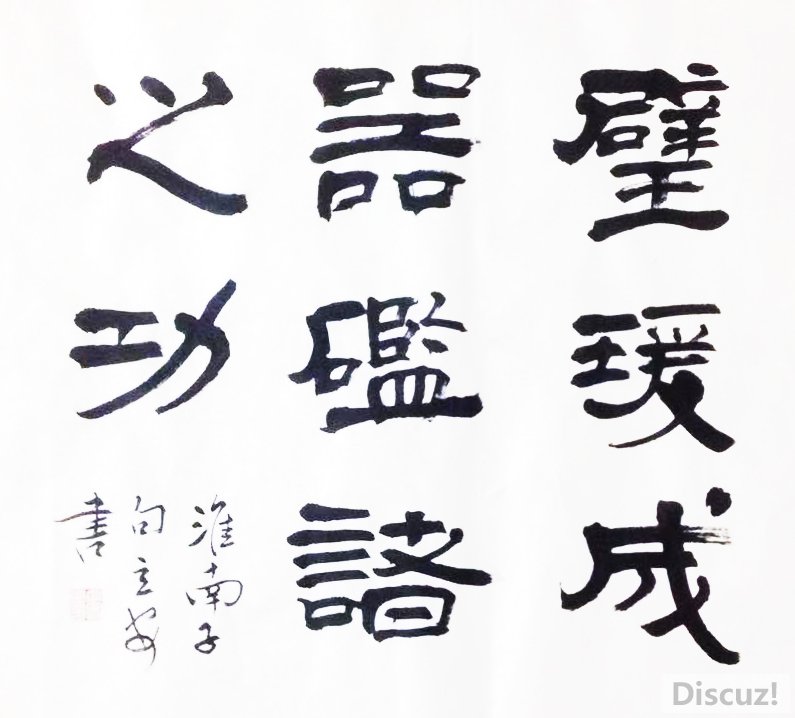 璧瑗成
器礛諸
之功
淮南子
句立安
書